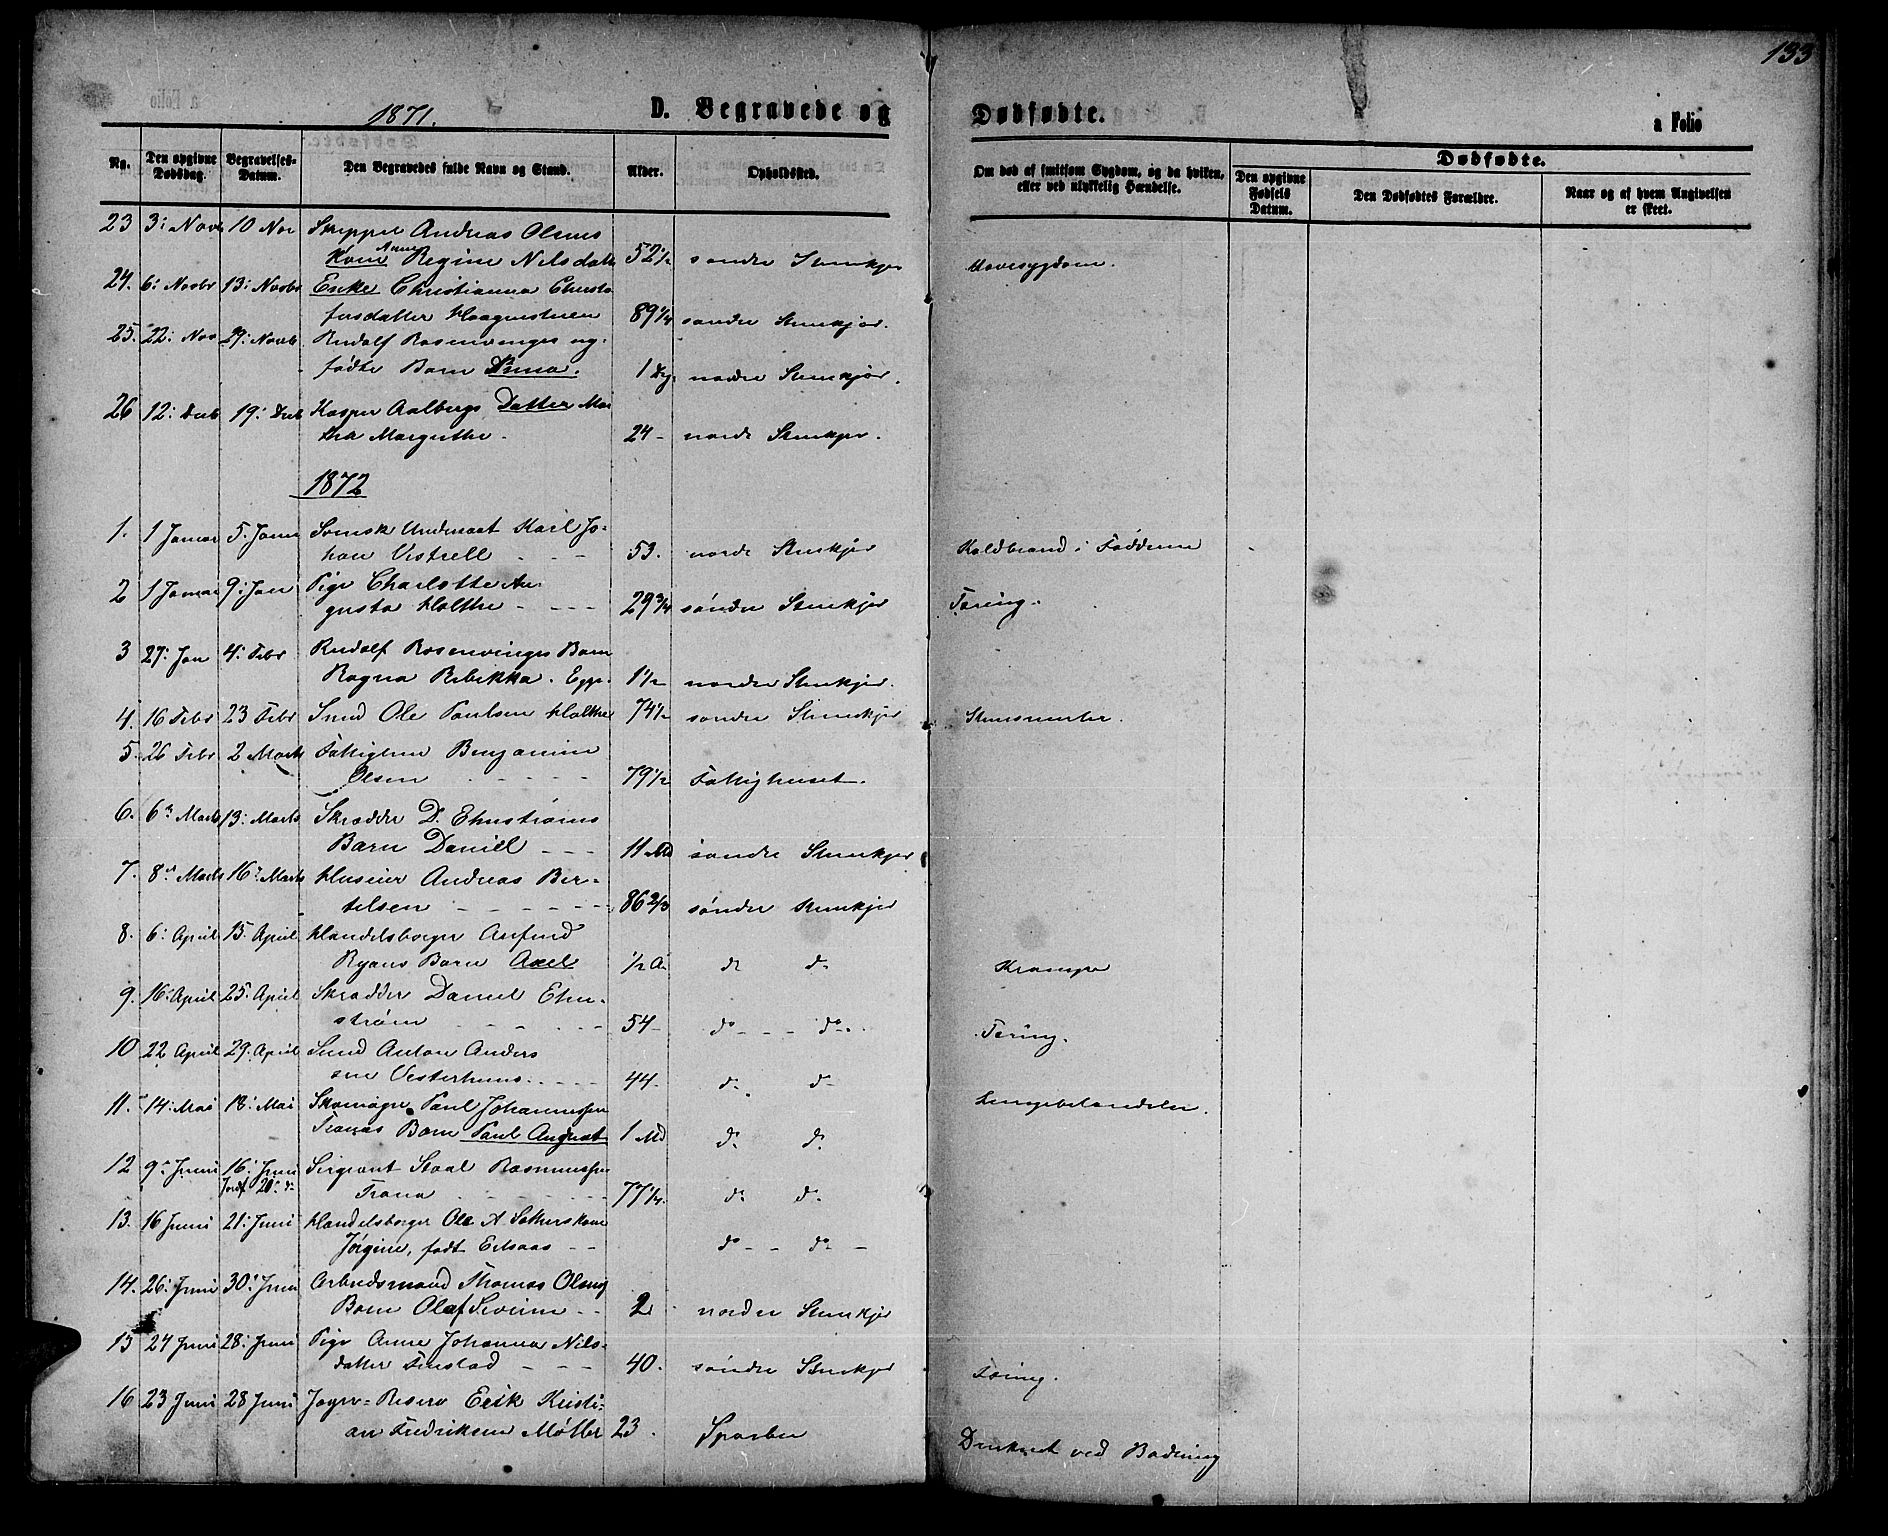 133
1871.
D. Begravede og Dødfødte.
a Folio
No.
Den opgivne Dødsdag.
Begravelses-Datum.
Den Begravedes fulde Navn og Stand.
Alder.
Opholdssted.
Om død af smitsom Sygdom, og da hvilken, eller ved ulykkelig Hændelse.
Dødfødte.
Den opgivne Fødsels Datum.
Den Dødfødtes Forældre.
Naar og af hvem Angivelsen er skeet.
23 3: Nov 10 Nov Skipper Andreas Olsens
Kone Regine Nilsdatt 52½ søndre Stenkjer Mavesygdom.
24. 6: Novbr 13: Novbr Enke Christianna Christo
fersdatter 89¼ søndre Stenkjær.
25. 22: Nov 29: Novb Rudolf Rosenvinges ny
fødte Barn Anna. 1 Dg. nordre Stenkjær.
26 12: Decb 19: Decb Kasper Aalbergs Datter Mar
tha Margrethe. 24 nordr Stenkjer.
1872
1. 1 Januar 5. Janu Svensk Undersaat Karl Jo-
han Vestrell 53. nordr Stenkjer Koldbrand i Fødderne
2 1 Januar 9: Jan Pige Charlotte Au-
gusta Holthe 29¾ søndre Stenkjer Tæring.
3 27: Jan 4: Febr Rudolf Rosenvinges Barn
Ragna Rebekka. Egge. 1½ nordre Stenkjer.
4. 16 Febr 23 Febr Svend Ole Paulsen Holthe 74½ søndre Stenkjer Steensmerter.
5. 26 Febr 2 Marts Fattiglem Benjamin
Olsen 79½ Fattighuset.
6. 6: Marts 13: Marts Skrædder D. Ehnstrøms
Barn Daniel 11 Md søndre Stenkjer
7. 8: Marts 16: Marts Huseier Andreas Ber-
telsen 86 2/3 søndre Stenkjer
8. 6: April 15. April Handelsborger Anfind
Ryans Barn Axel ½ A. do do Krampe
9. 16: April 25. April Skrædder Daniel Ehn-
strøm 54 do do Tæring.
10 22 April 29. April Svend Anton Anders
sen Vesterhuus 44 do do
11. 14: Mai 18: Mai Skomager Paul Johannessen
Tranas Barn Paul August 1 Md do do
Lungebetændelse.
12 9: Juni 16: Juni Sergeant Staal Rasmussen
Jordf 20: do Trana 77¼. do do
13. 16 Juni 21: Juni Handelsborger Ole A. Sætherskone
Jørgine, født Eelsaas do do
14. 26: Juni 30: Juni Arbeidsmand Thomas Olsens
Barn Olaf Severin 2 nordre Stenkjer
15 24 Juni 28: Juni Pige Anne Johanna Nils-
datter Finstad 40. søndre Stenkjer Tæring.
16 23 Juni 28 Juni Jæger-Reserv Erik Kristi-
an Fredriksen Møller 23. Sparbu Druknet ved Badning